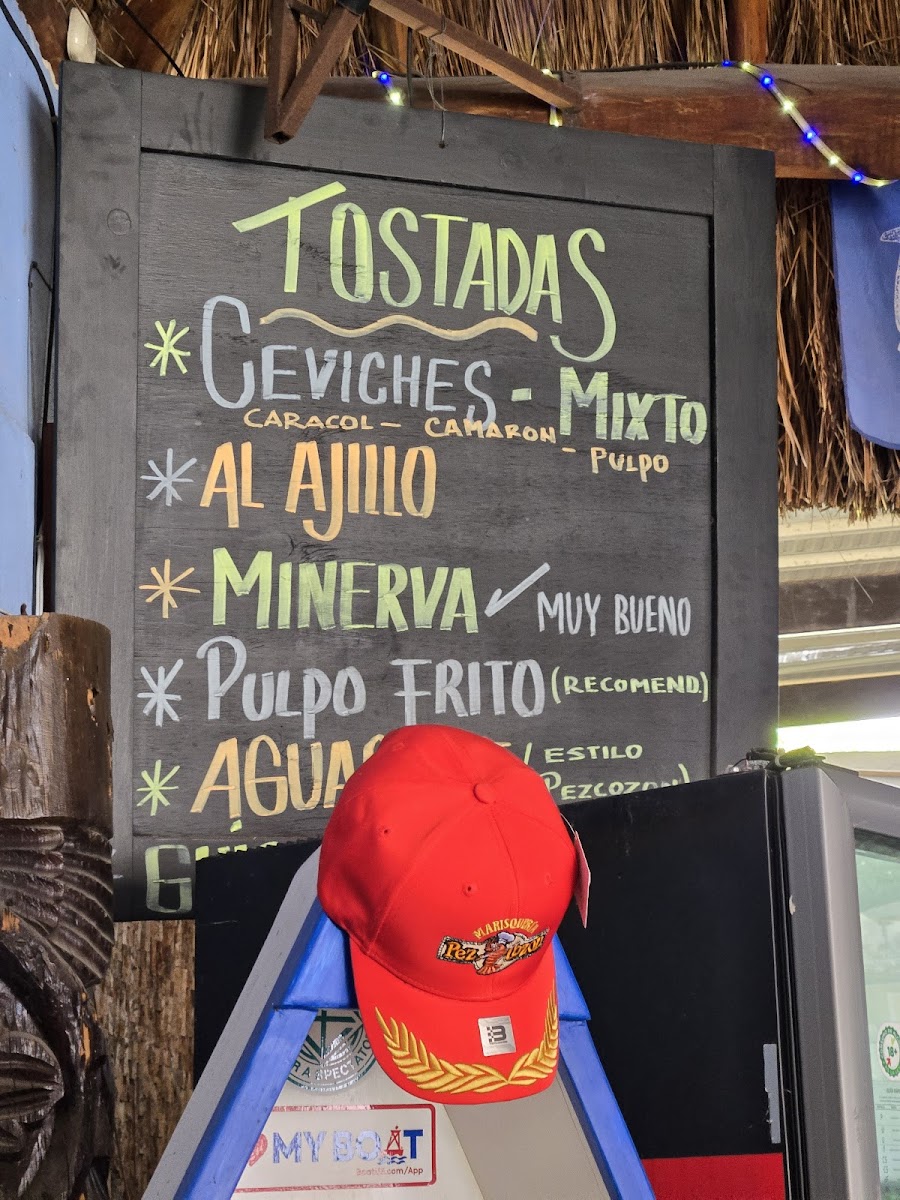 TOSTADAS
* CEVICHES - MIXTO
CARACOL - CAMARON - PULPO
* AL AJIIIO
* MINERVA ✓ MUY BUENO
* PULPO FRITO (RECOMEND.)
* ESTILO
PEZCOZON)
MARISQUERIA
Pez
MY BOAT
18+